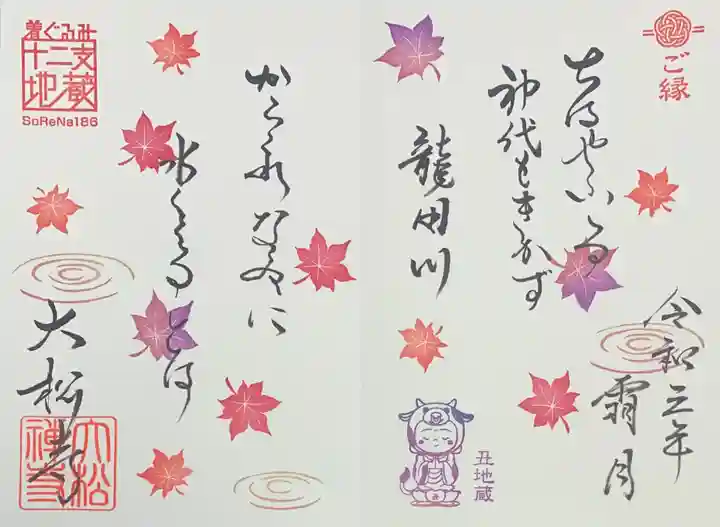 ご縁
令和三年
霜月
ちはやふる
神代もきかず
龍田川
丑地蔵
からくれなゐに
水くくるとは
着ぐるみ
十二支
地蔵
SoReNa186
大松寺
大松
禅寺